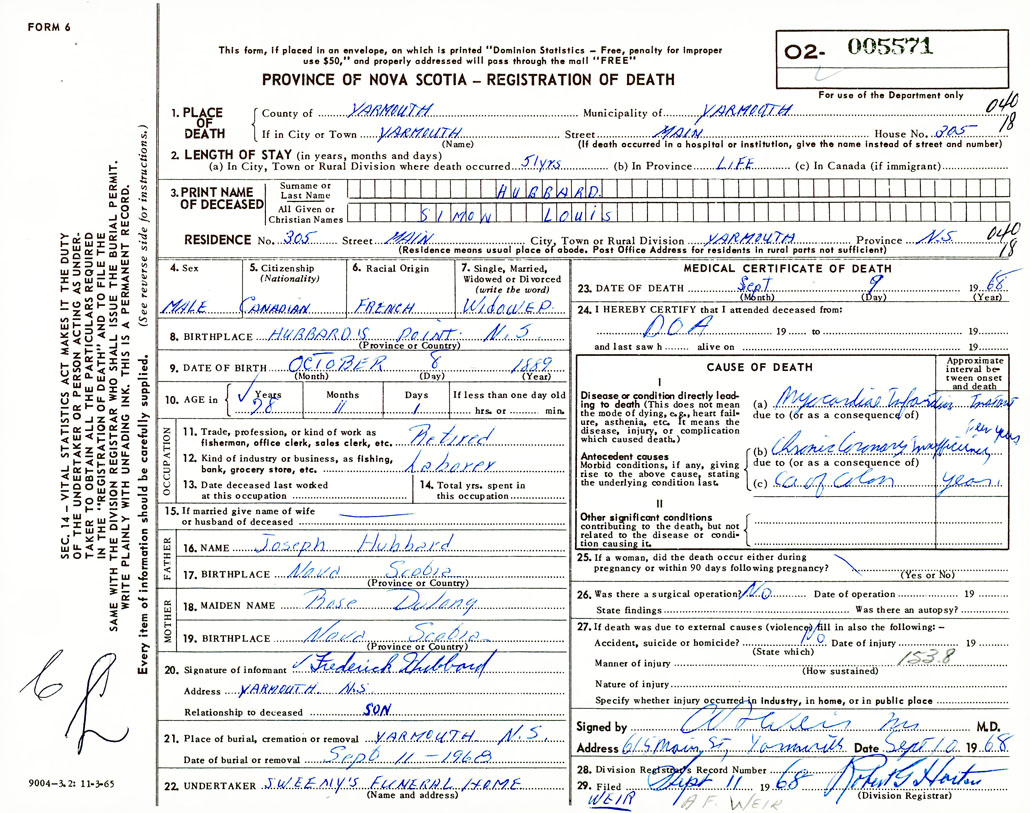 FORM 6
This form, if placed in an envelope, on which is printed "Dominion Statistics – Free, penalty for improper
use $50," and properly addressed will pass through the mail "FREE"
O2- 005571
PROVINCE OF NOVA SCOTIA – REGISTRATION OF DEATH
For use of the Department only
040
18
1. PLACE OF DEATH
County of YARMOUTH Municipality of YARMOUTH
If in City or Town YARMOUTH Street MAIN House No. 305
(Name) (If death occurred in a hospital or institution, give the name instead of street and number)
2. LENGTH OF STAY (in years, months and days)
(a) In City, Town or Rural Division where death occurred 51 yrs (b) In Province LIFE (c) In Canada (if immigrant)
3. PRINT NAME OF DECEASED
Surname or Last Name HUBBARD
All Given or Christian Names SIMON LOUIS
RESIDENCE No. 305 Street MAIN City, Town or Rural Division YARMOUTH Province N.S.
(Residence means usual place of abode. Post Office Address for residents in rural parts not sufficient)
040
18
4. Sex
MALE
5. Citizenship (Nationality)
CANADIAN
6. Racial Origin
FRENCH
7. Single, Married, Widowed or Divorced (write the word)
WIDOWED
8. BIRTHPLACE HUBBARD'S POINT N.S.
(Province or Country)
9. DATE OF BIRTH OCTOBER 8 1889
(Month) (Day) (Year)
10. AGE in
Years Months Days If less than one day old
78 11 1 hrs. or min.
OCCUPATION
11. Trade, profession, or kind of work as
fisherman, office clerk, sales clerk, etc. Retired
12. Kind of industry or business, as fishing,
bank, grocery store, etc. Laborer
13. Date deceased last worked
at this occupation
14. Total yrs. spent in
this occupation
15. If married give name of wife
or husband of deceased
FATHER
16. NAME Joseph Hubbard
17. BIRTHPLACE Nova Scotia
(Province or Country)
MOTHER
18. MAIDEN NAME Rose
19. BIRTHPLACE Nova Scotia
(Province or Country)
20. Signature of informant Frederick Hubbard
Address YARMOUTH N.S.
Relationship to deceased SON
21. Place of burial, cremation or removal YARMOUTH N.S.
Date of burial or removal Sept. 11 - 1968
22. UNDERTAKER SWEENY'S FUNERAL HOME
(Name and address)
MEDICAL CERTIFICATE OF DEATH
23. DATE OF DEATH Sept 9 1968
(Month) (Day) (Year)
24. I HEREBY CERTIFY that I attended deceased from:
DOA 19 to 19
and last saw h alive on 19
CAUSE OF DEATH
Approximate interval between onset and death
I
Disease or condition directly leading to death (This does not mean the mode of dying, e.g., heart failure, asthenia, etc. It means the disease, injury, or complication which caused death.)
(a) Myocardial Infarction Instant
due to (or as a consequence of)
Antecedent causes
Morbid conditions, if any, giving rise to the above cause, stating the underlying condition last.
(b) Chronic Coronary Insufficiency few years
due to (or as a consequence of)
(c) Ca of Colon year.
II
Other significant conditions
contributing to the death, but not related to the disease or condition causing it.
25. If a woman, did the death occur either during
pregnancy or within 90 days following pregnancy?
(Yes or No)
26. Was there a surgical operation? No Date of operation 19
State findings Was there an autopsy?
27. If death was due to external causes (violence) fill in also the following: –
Accident, suicide or homicide? No Date of injury 19
(State which)
153.8
Manner of injury
(How sustained)
Nature of injury
Specify whether injury occurred in Industry, in home, or in public place
Signed by Weir MD M.D.
Address 615 Main St, Yarmouth Date Sept 10 1968
28. Division Registrar's Record Number
29. Filed Sept 11 1968 Robert G Horton
(Division Registrar)
WEIR A F. WEIR
SEC. 14 – VITAL STATISTICS ACT MAKES IT THE DUTY
OF THE UNDERTAKER OR PERSON ACTING AS UNDER-
TAKER TO OBTAIN ALL THE PARTICULARS REQUIRED
IN THE "REGISTRATION OF DEATH" AND TO FILE THE
SAME WITH THE DIVISION REGISTRAR WHO SHALL ISSUE THE BURIAL PERMIT.
WRITE PLAINLY WITH UNFADING INK. THIS IS A PERMANENT RECORD.
Every item of information should be carefully supplied. (See reverse side for instructions.)
9004–3.2: 11-3-65